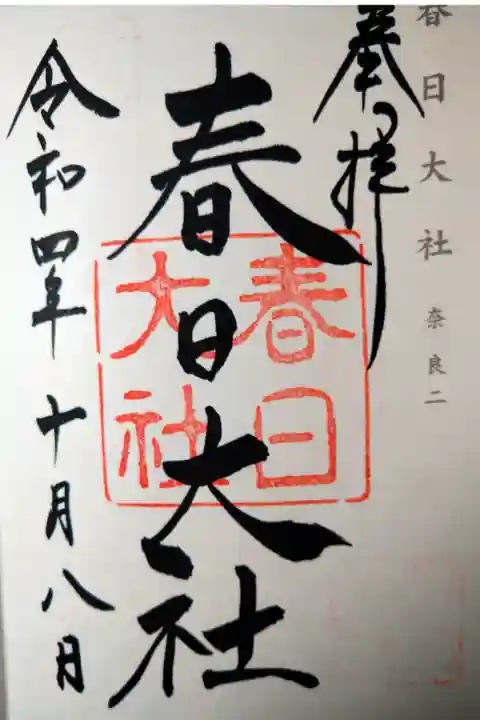 春日大社 奈良二
奉拝
春日大社
春日
大社
令和四年 十月八日